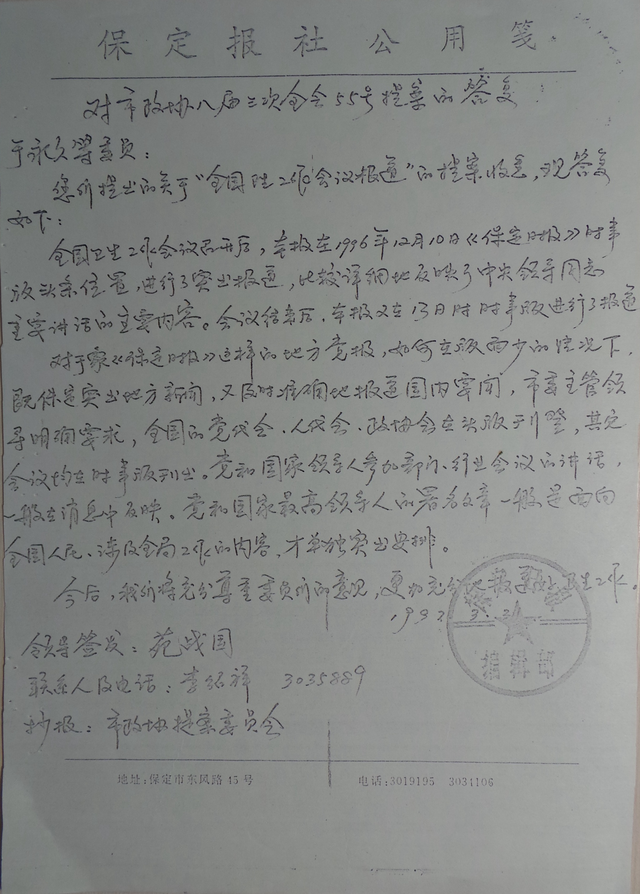 保定报社公用笺
对市政协八届三次全会55号提案的答复
于永久等委员:
您所提出的关于“全国卫生工作会议报道”的提案收悉,现答复
如下:
全国卫生工作会议召开后,本报在1996年12月10日《保定日报》时事
版头条位置,进行了突出报道,比较详细地反映了中央领导同志
主要讲话的主要内容。会议结束后,本报又在13日时时事版进行了报道
对于象《保定日报》这样的地方党报,如何在版面少的情况下,
既保证突出地方新闻,又及时准确地报道国内要闻,市委主管领
导明确要求,全国的党代会、人代会、政协会在头版刊登,其它
会议均在时事版刊出。党和国家领导人参加部门、行业会议的讲话,
一般在消息中反映。党和国家最高领导人的署名文章一般是面向
全国人民、涉及全局工作的内容,才单独突出安排。
今后,我们将充分尊重委员们的意见,更加充分地报道好卫生工作。
编辑部
领导签发:苑战国
联系人及电话:李绍祥 3035889
抄报:市政协提案委员会
地址:保定市东风路45号 电话:3019195 3031106